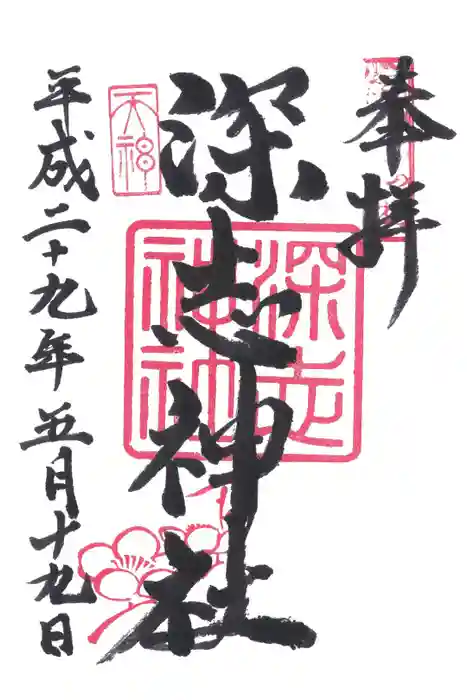 奉拝
深志神社
深志神社
天神
平成二十九年五月十九日